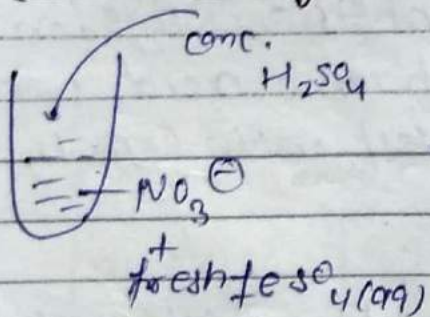 conc.
H₂SO₄
NO₃⊖
+
fresh feso₄(aq)